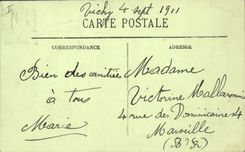 Vichy 4 sept 1911
CARTE POSTALE
CORRESPONDANCE
ADRESSE
Bien des amitiés
à tous
Marie
Madame
Victorine Mallaroni
4 rue des Dominicaines 4
Marseille
(Bs Rh)